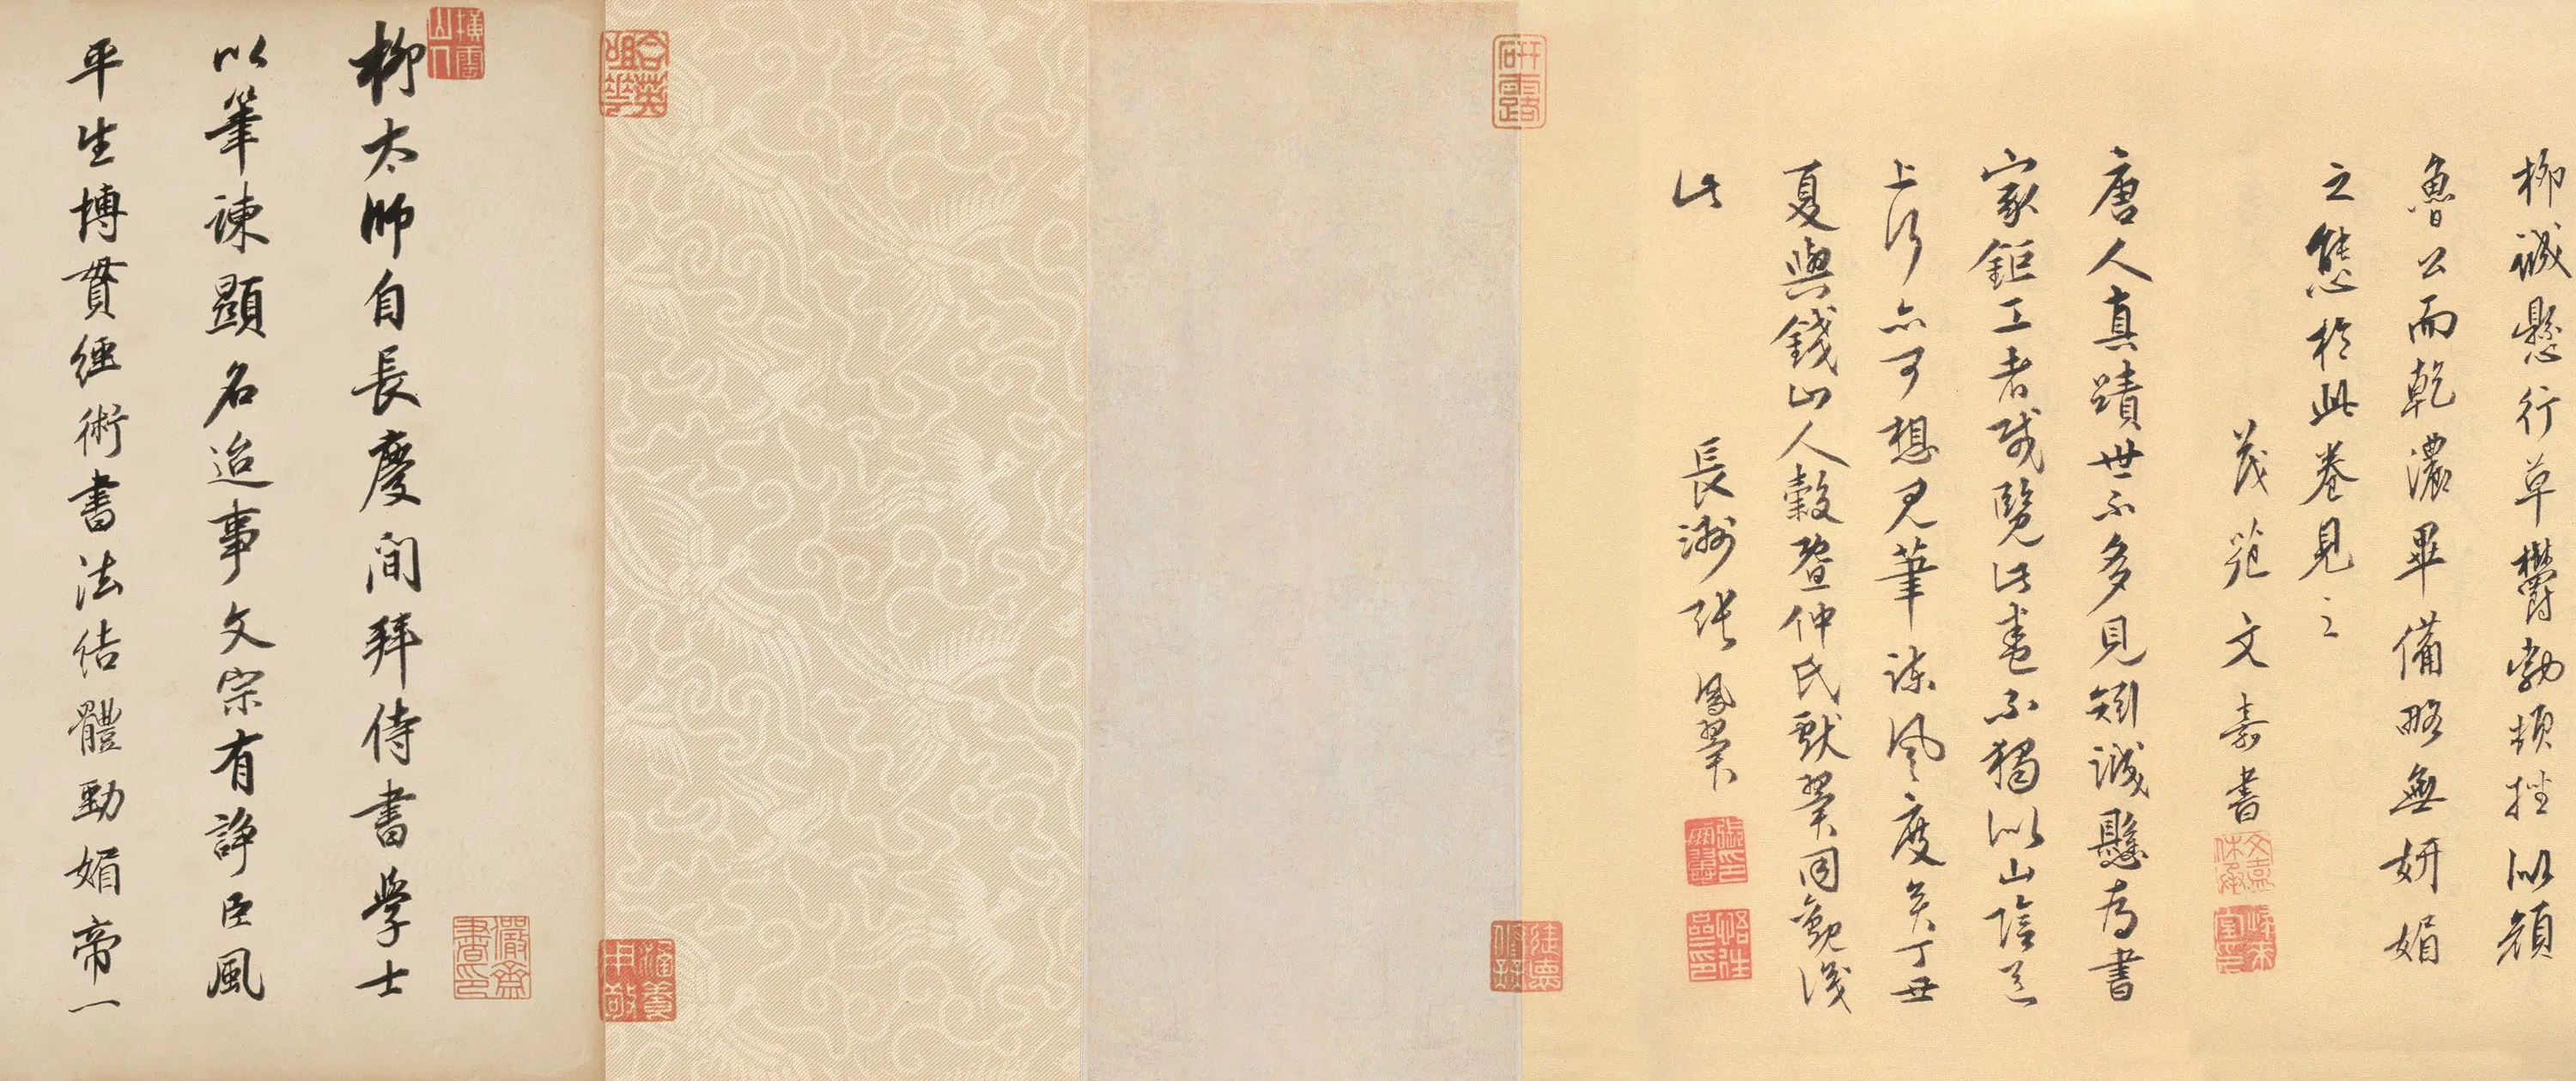 柳誠懸行草鬱勃頓挫似顏
魯公而乾濃畢備略無妍媚
之態於此卷見之
茂苑文嘉書
唐人真蹟世不多見矧誠懸為書
家鉅工者哉覽此書不獨似山陰道
上行亦可想見筆諫風度矣丁丑
夏與錢山人穀暨仲氏獻翼同觀識
此
長洲張鳳翼
柳太師自長慶間拜侍書學士
以筆諫顯名迨事文宗有諍臣風
平生博貫經術書法結體勁媚帝一